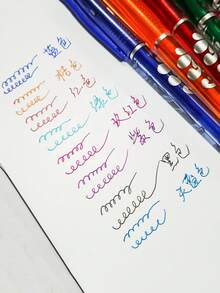 蓝色
橘色
红色
绿色
玫红色
紫色
黑色
天蓝色